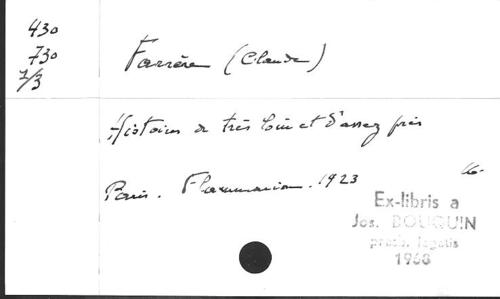 430
730
7/3
Farrère (Claude)
Histoires de très loin et d'assez près
Paris. Flammarion. 1923
16-
Ex-libris a
Jos. BOUQUIN
presb. legatis
1968